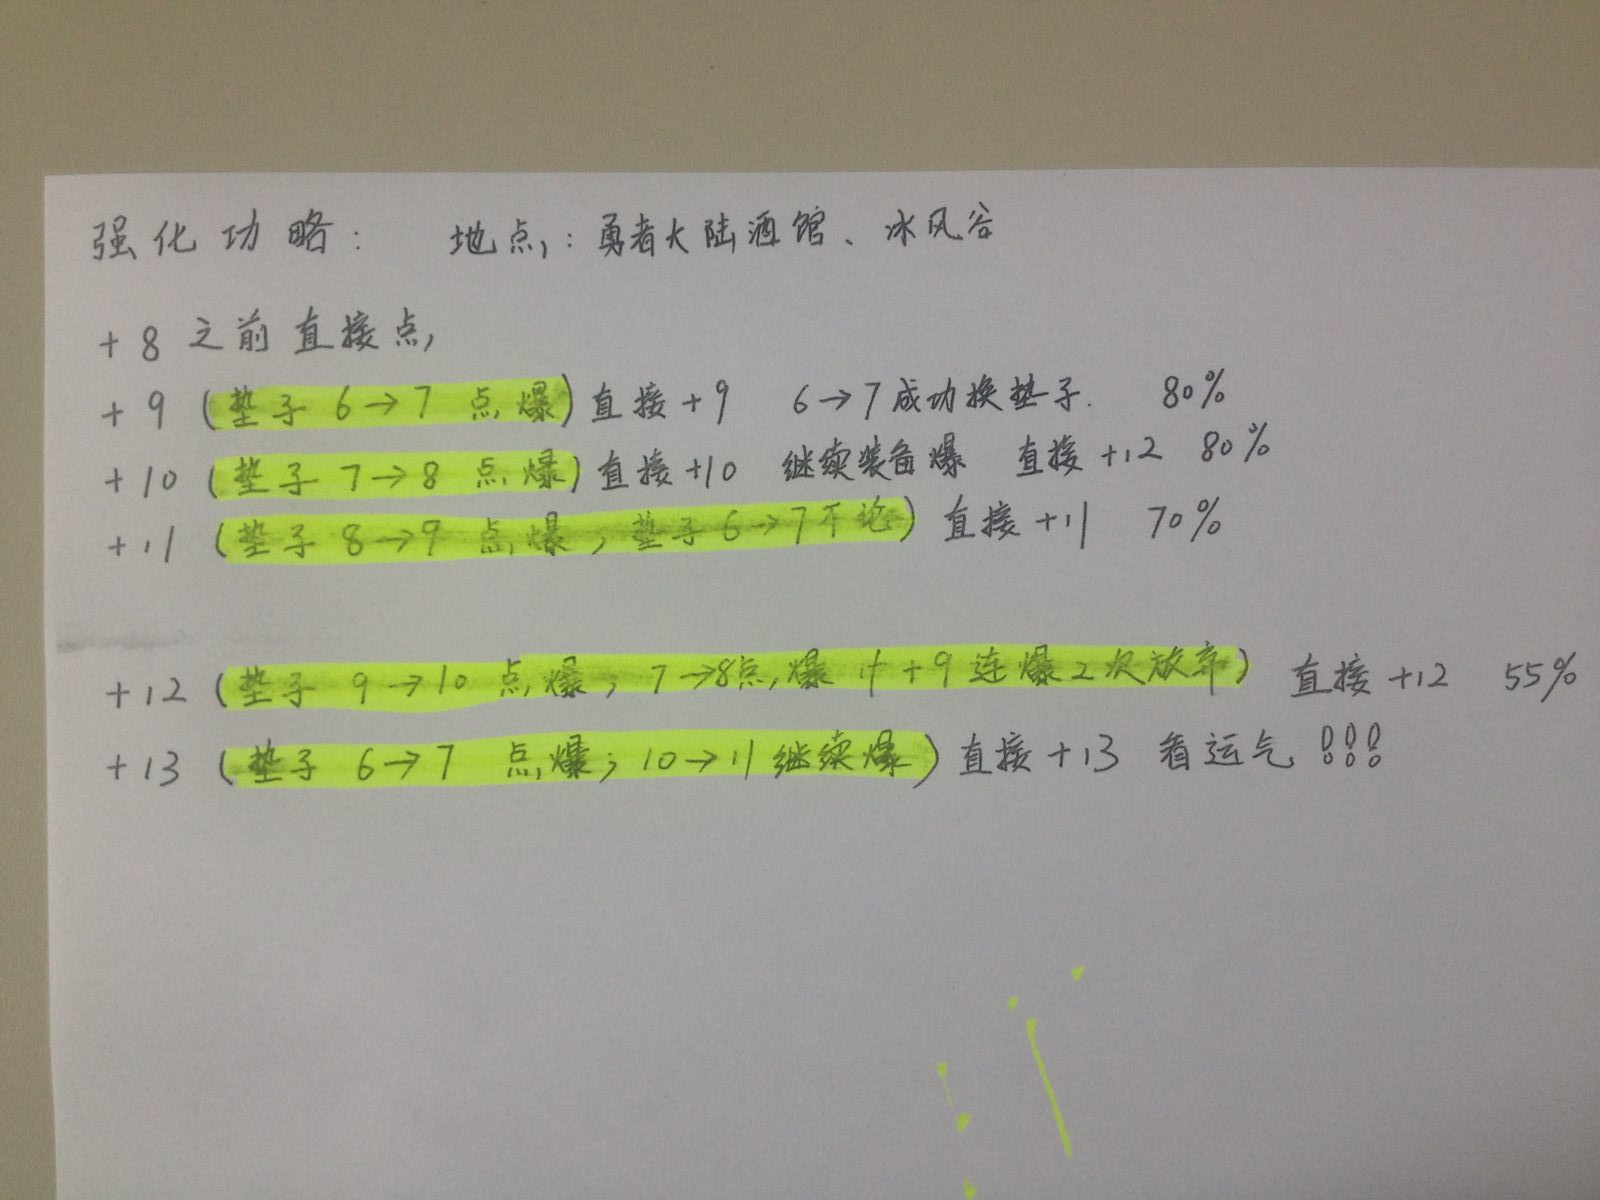 强化功略： 地点：勇者大陆酒馆、冰风谷
+8 之前直接点
+9 (垫子 6→7 点爆) 直接+9 6→7成功换垫子. 80%
+10 (垫子 7→8 点爆) 直接+10 继续装备爆 直接+12 80%
+11 (垫子 8→9 点爆, 垫子6→7不论) 直接+11 70%
+12 (垫子 9→10 点爆; 7→8点爆 +9连爆2次放弃) 直接+12 55%
+13 (垫子 6→7 点爆; 10→11继续爆) 直接+13 看运气!!!